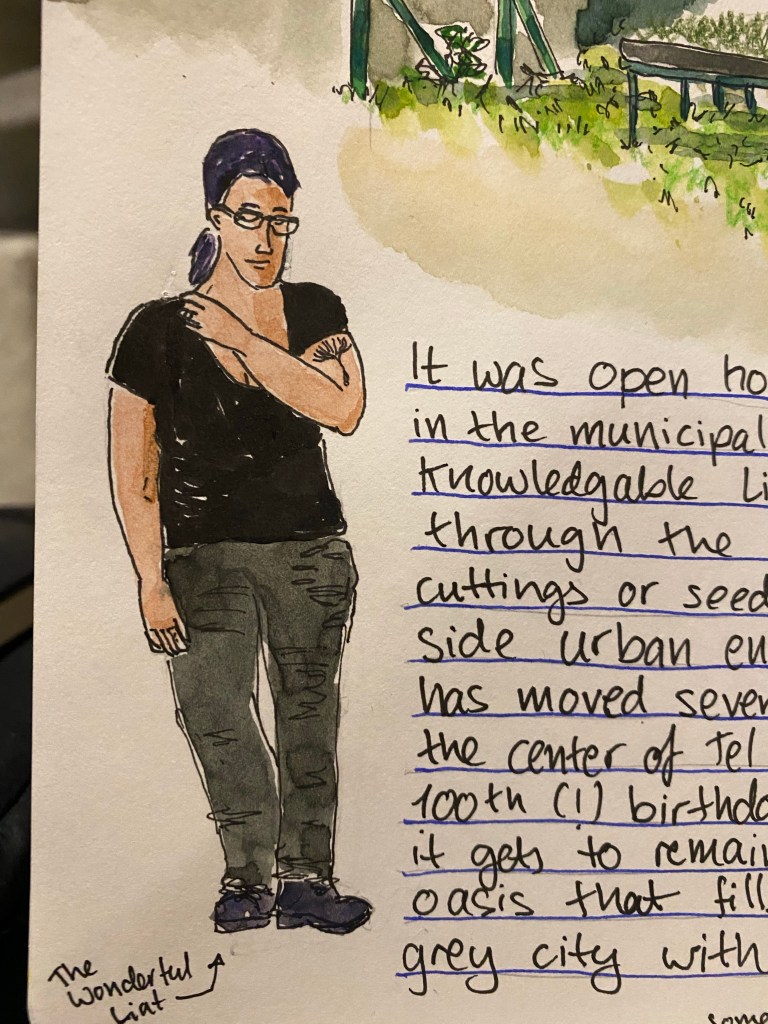 It was open ho
in the municipal
knowledgable Li
through the
cuttings or seed
side urban en
has moved sever
the center of Tel
100th (!) birthda
it gets to remain
oasis that fill
grey city with
some
The
Wonderful
Liat